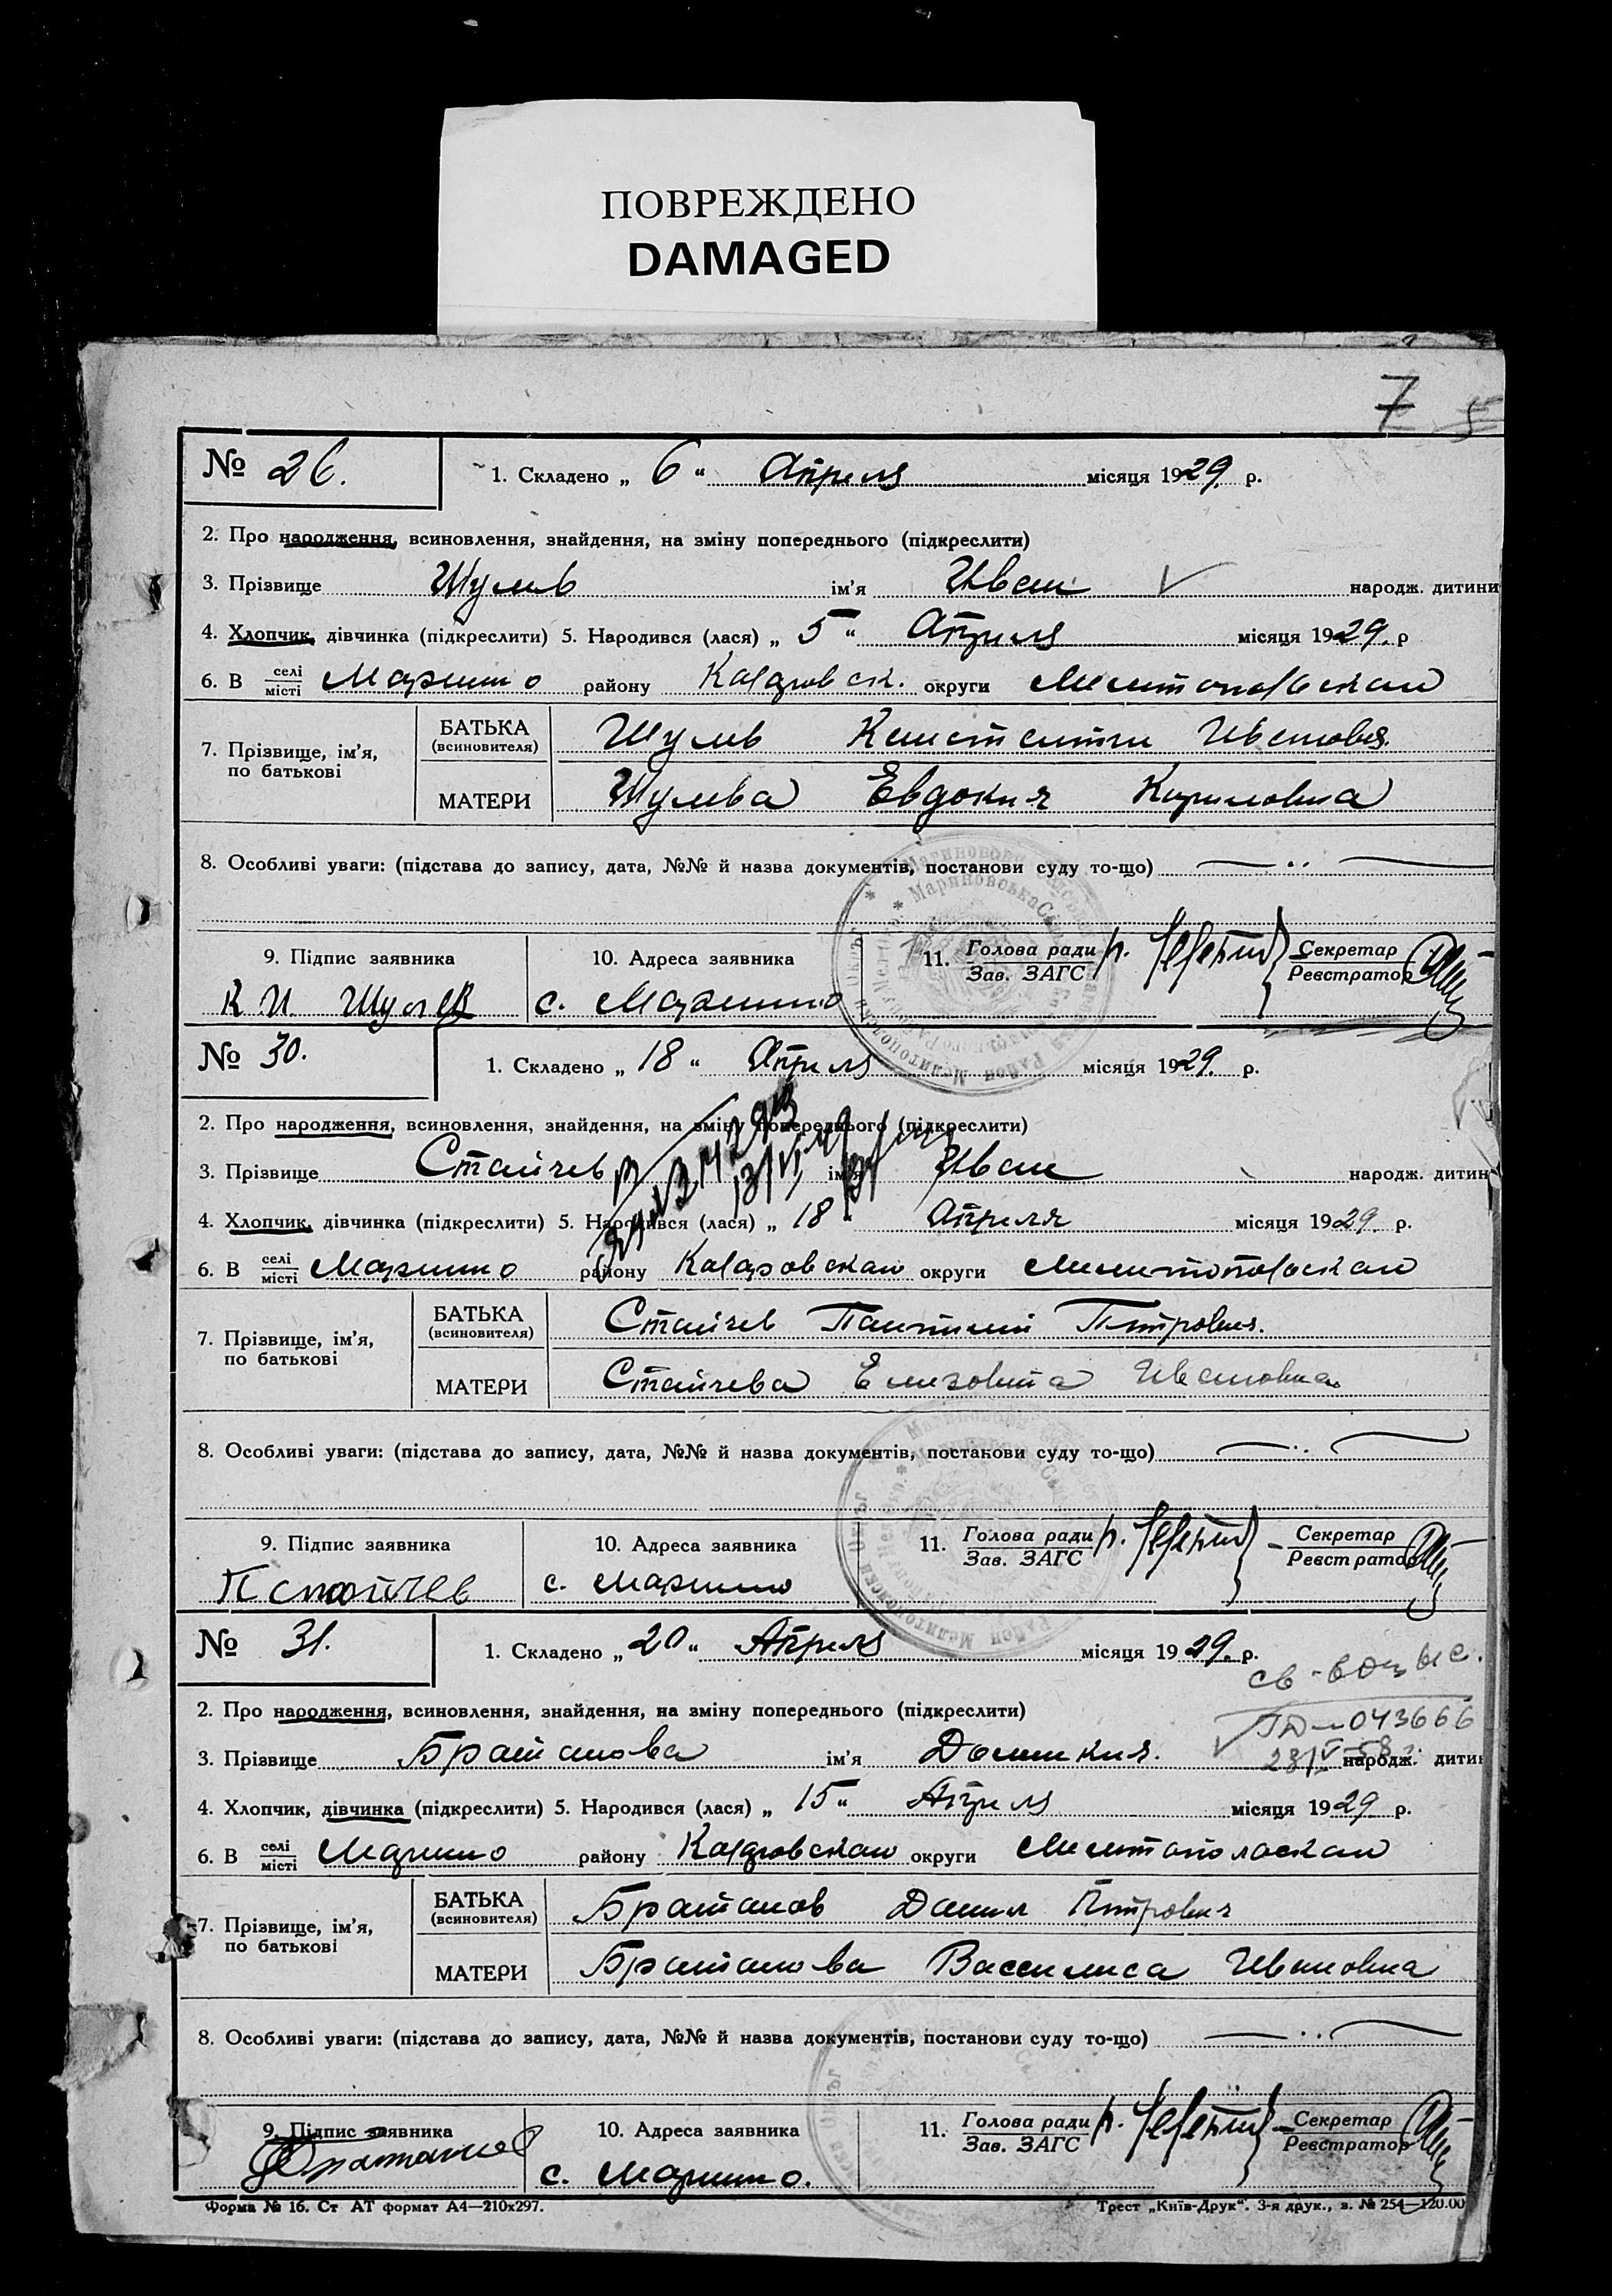 ПОВРЕЖДЕНО
DAMAGED
7
№ 26. 1. Складено „ 6 “ Апреля місяця 1929. р.
2. Про народження, всиновлення, знайдення, на зміну попереднього (підкреслити)
3. Прізвище Шулев ім’я Иван народж. дитини
4. Хлопчик, дівчинка (підкреслити) 5. Народився (лася) „ 5 “ Апреля місяця 1929. р
6. В селі місті Марино району округи
7. Прізвище, ім’я, по батькові
БАТЬКА (всиновителя) Шулев Константин Иванович.
МАТЕРИ Шулева Евдокия Кириловна
8. Особливі уваги: (підстава до запису, дата, №№ й назва документів, постанови суду то-що)
9. Підпис заявника 10. Адреса заявника 11. Голова ради Зав. ЗАГС Секретар Реєстратор
К И Шулев с. Марино
№ 30. 1. Складено „ 18 “ Апреля місяця 1929. р.
2. Про народження, всиновлення, знайдення, на зміну попереднього (підкреслити)
3. Прізвище Стайчев ім’я Иван народж. дитин
4. Хлопчик, дівчинка (підкреслити) 5. Народився (лася) „ 18 “ Апреля місяця 1929. р.
6. В селі місті Марино району округи
7. Прізвище, ім’я, по батькові
БАТЬКА (всиновителя) Стайчев Пантилей Петрович.
МАТЕРИ Стайчева Елизовета Ивановна
8. Особливі уваги: (підстава до запису, дата, №№ й назва документів, постанови суду то-що)
9. Підпис заявника 10. Адреса заявника 11. Голова ради Зав. ЗАГС Секретар Реєстратор
П Стайчев с. Марино
№ 31. 1. Складено „ 20 “ Апреля місяця 1929. р.
2. Про народження, всиновлення, знайдення, на зміну попереднього (підкреслити)
043666
3. Прізвище Братанова ім’я народж. дитин
4. Хлопчик, дівчинка (підкреслити) 5. Народився (лася) „ 15 “ Апреля місяця 1929. р.
6. В селі місті Марино району округи
7. Прізвище, ім’я, по батькові
БАТЬКА (всиновителя) Братанов Данил Петрович
МАТЕРИ Братанова Вассилиса Ивановна
8. Особливі уваги: (підстава до запису, дата, №№ й назва документів, постанови суду то-що)
9. Підпис заявника 10. Адреса заявника 11. Голова ради Зав. ЗАГС Секретар Реєстратор
с. Марино.
Форма № 16. Ст АТ формат А4—210х297. Трест „Київ-Друк“. 3-я друк., з. № 254—120.00